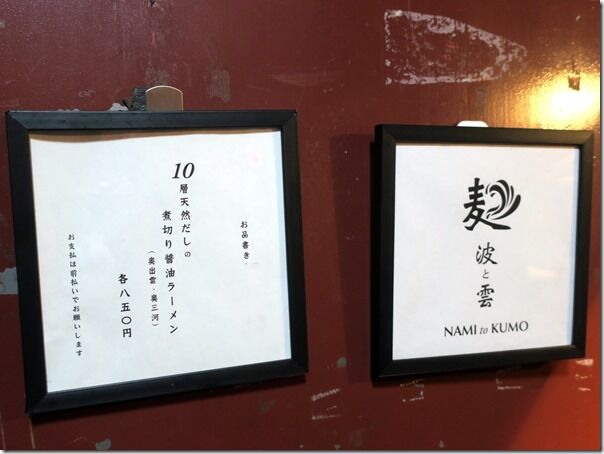 お品書き
10層天然だしの
煮切り醤油ラーメン
（奥出雲・奥三河）
各八五〇円
お支払は前払いでお願いします
麺
波と雲
NAMI to KUMO